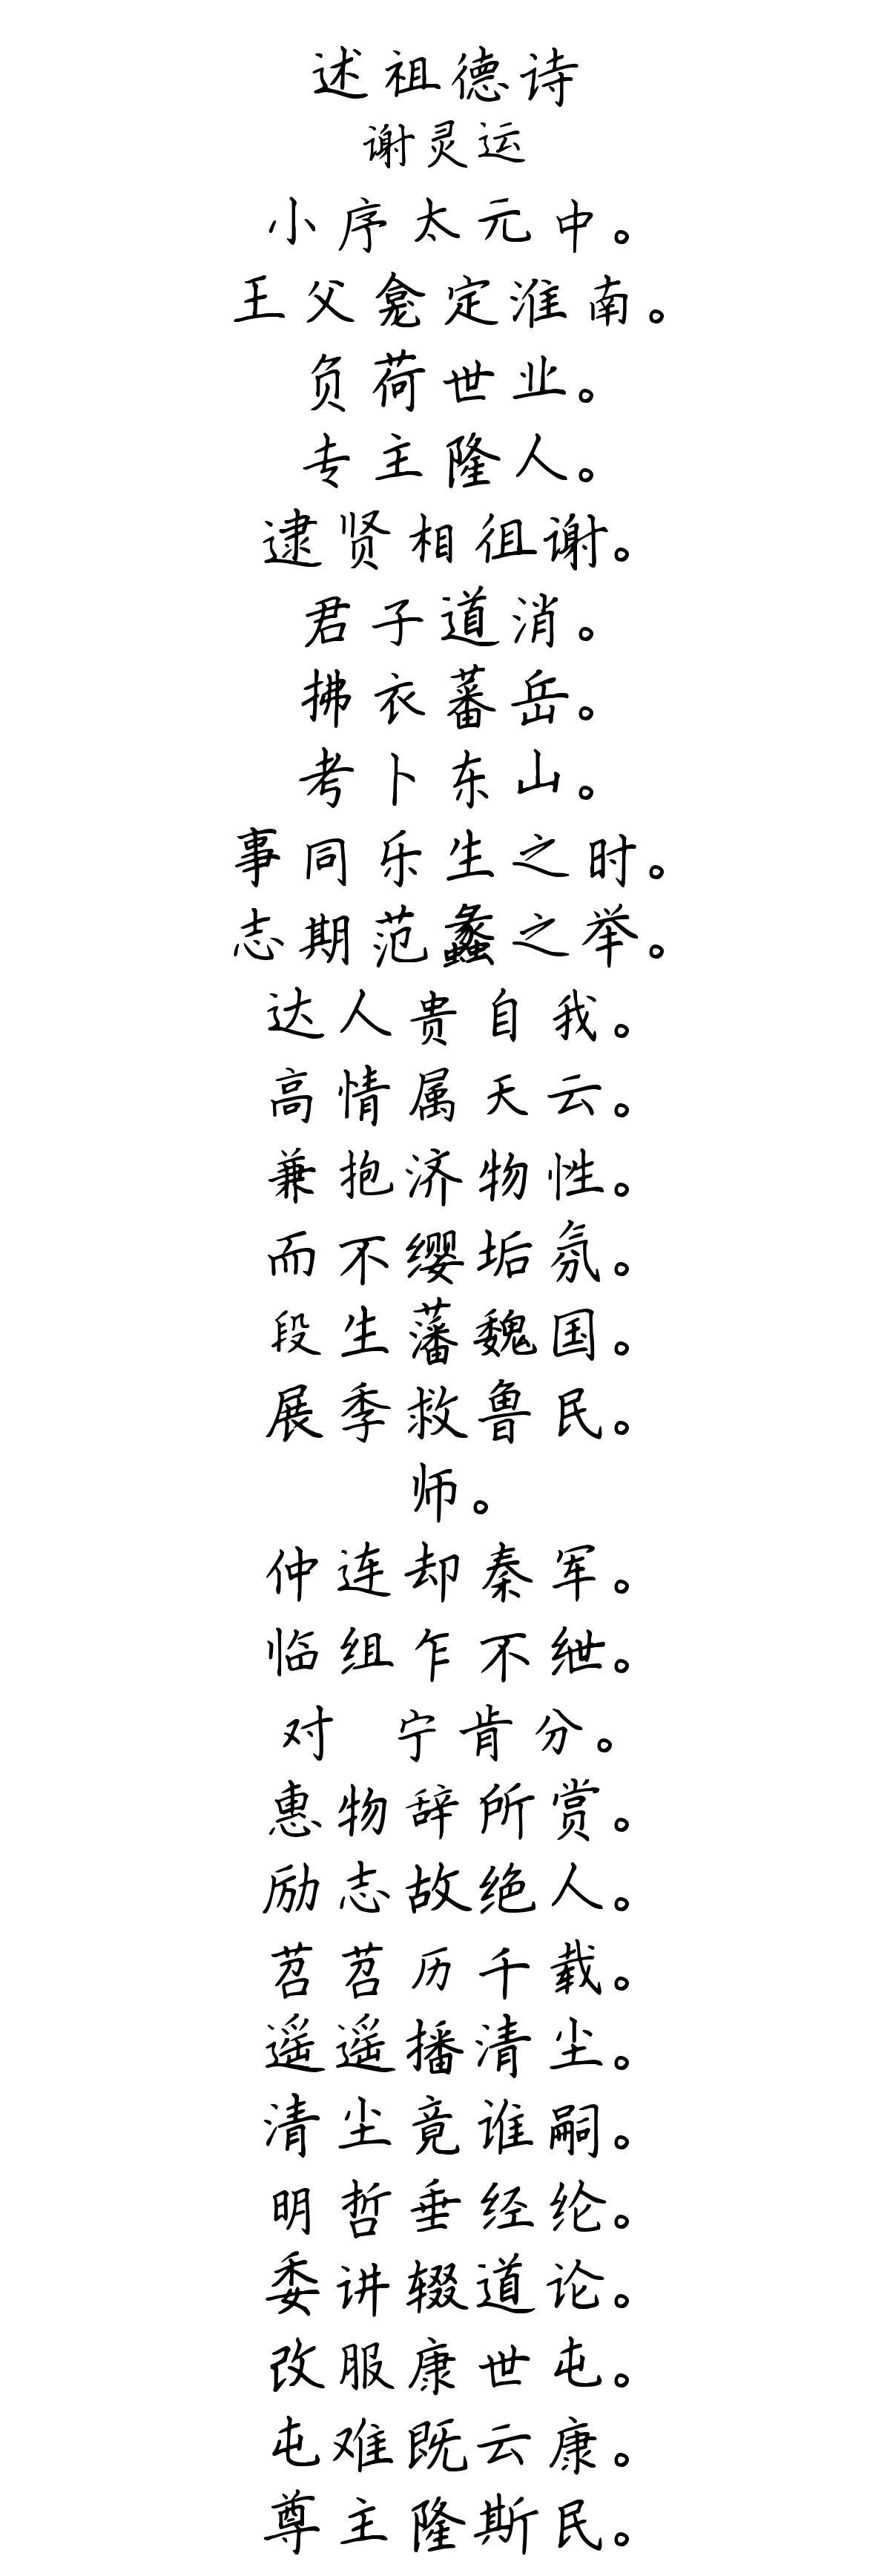 述祖德诗
谢灵运
小序太元中。
王父龛定淮南。
负荷世业。
专主隆人。
逮贤相徂谢。
君子道消。
拂衣蕃岳。
考卜东山。
事同乐生之时。
志期范蠡之举。
达人贵自我。
高情属天云。
兼抱济物性。
而不缨垢氛。
段生藩魏国。
展季救鲁民。
师。
仲连却秦军。
临组乍不绁。
对 宁肯分。
惠物辞所赏。
励志故绝人。
苕苕历千载。
遥遥播清尘。
清尘竟谁嗣。
明哲垂经纶。
委讲辍道论。
改服康世屯。
屯难既云康。
尊主隆斯民。